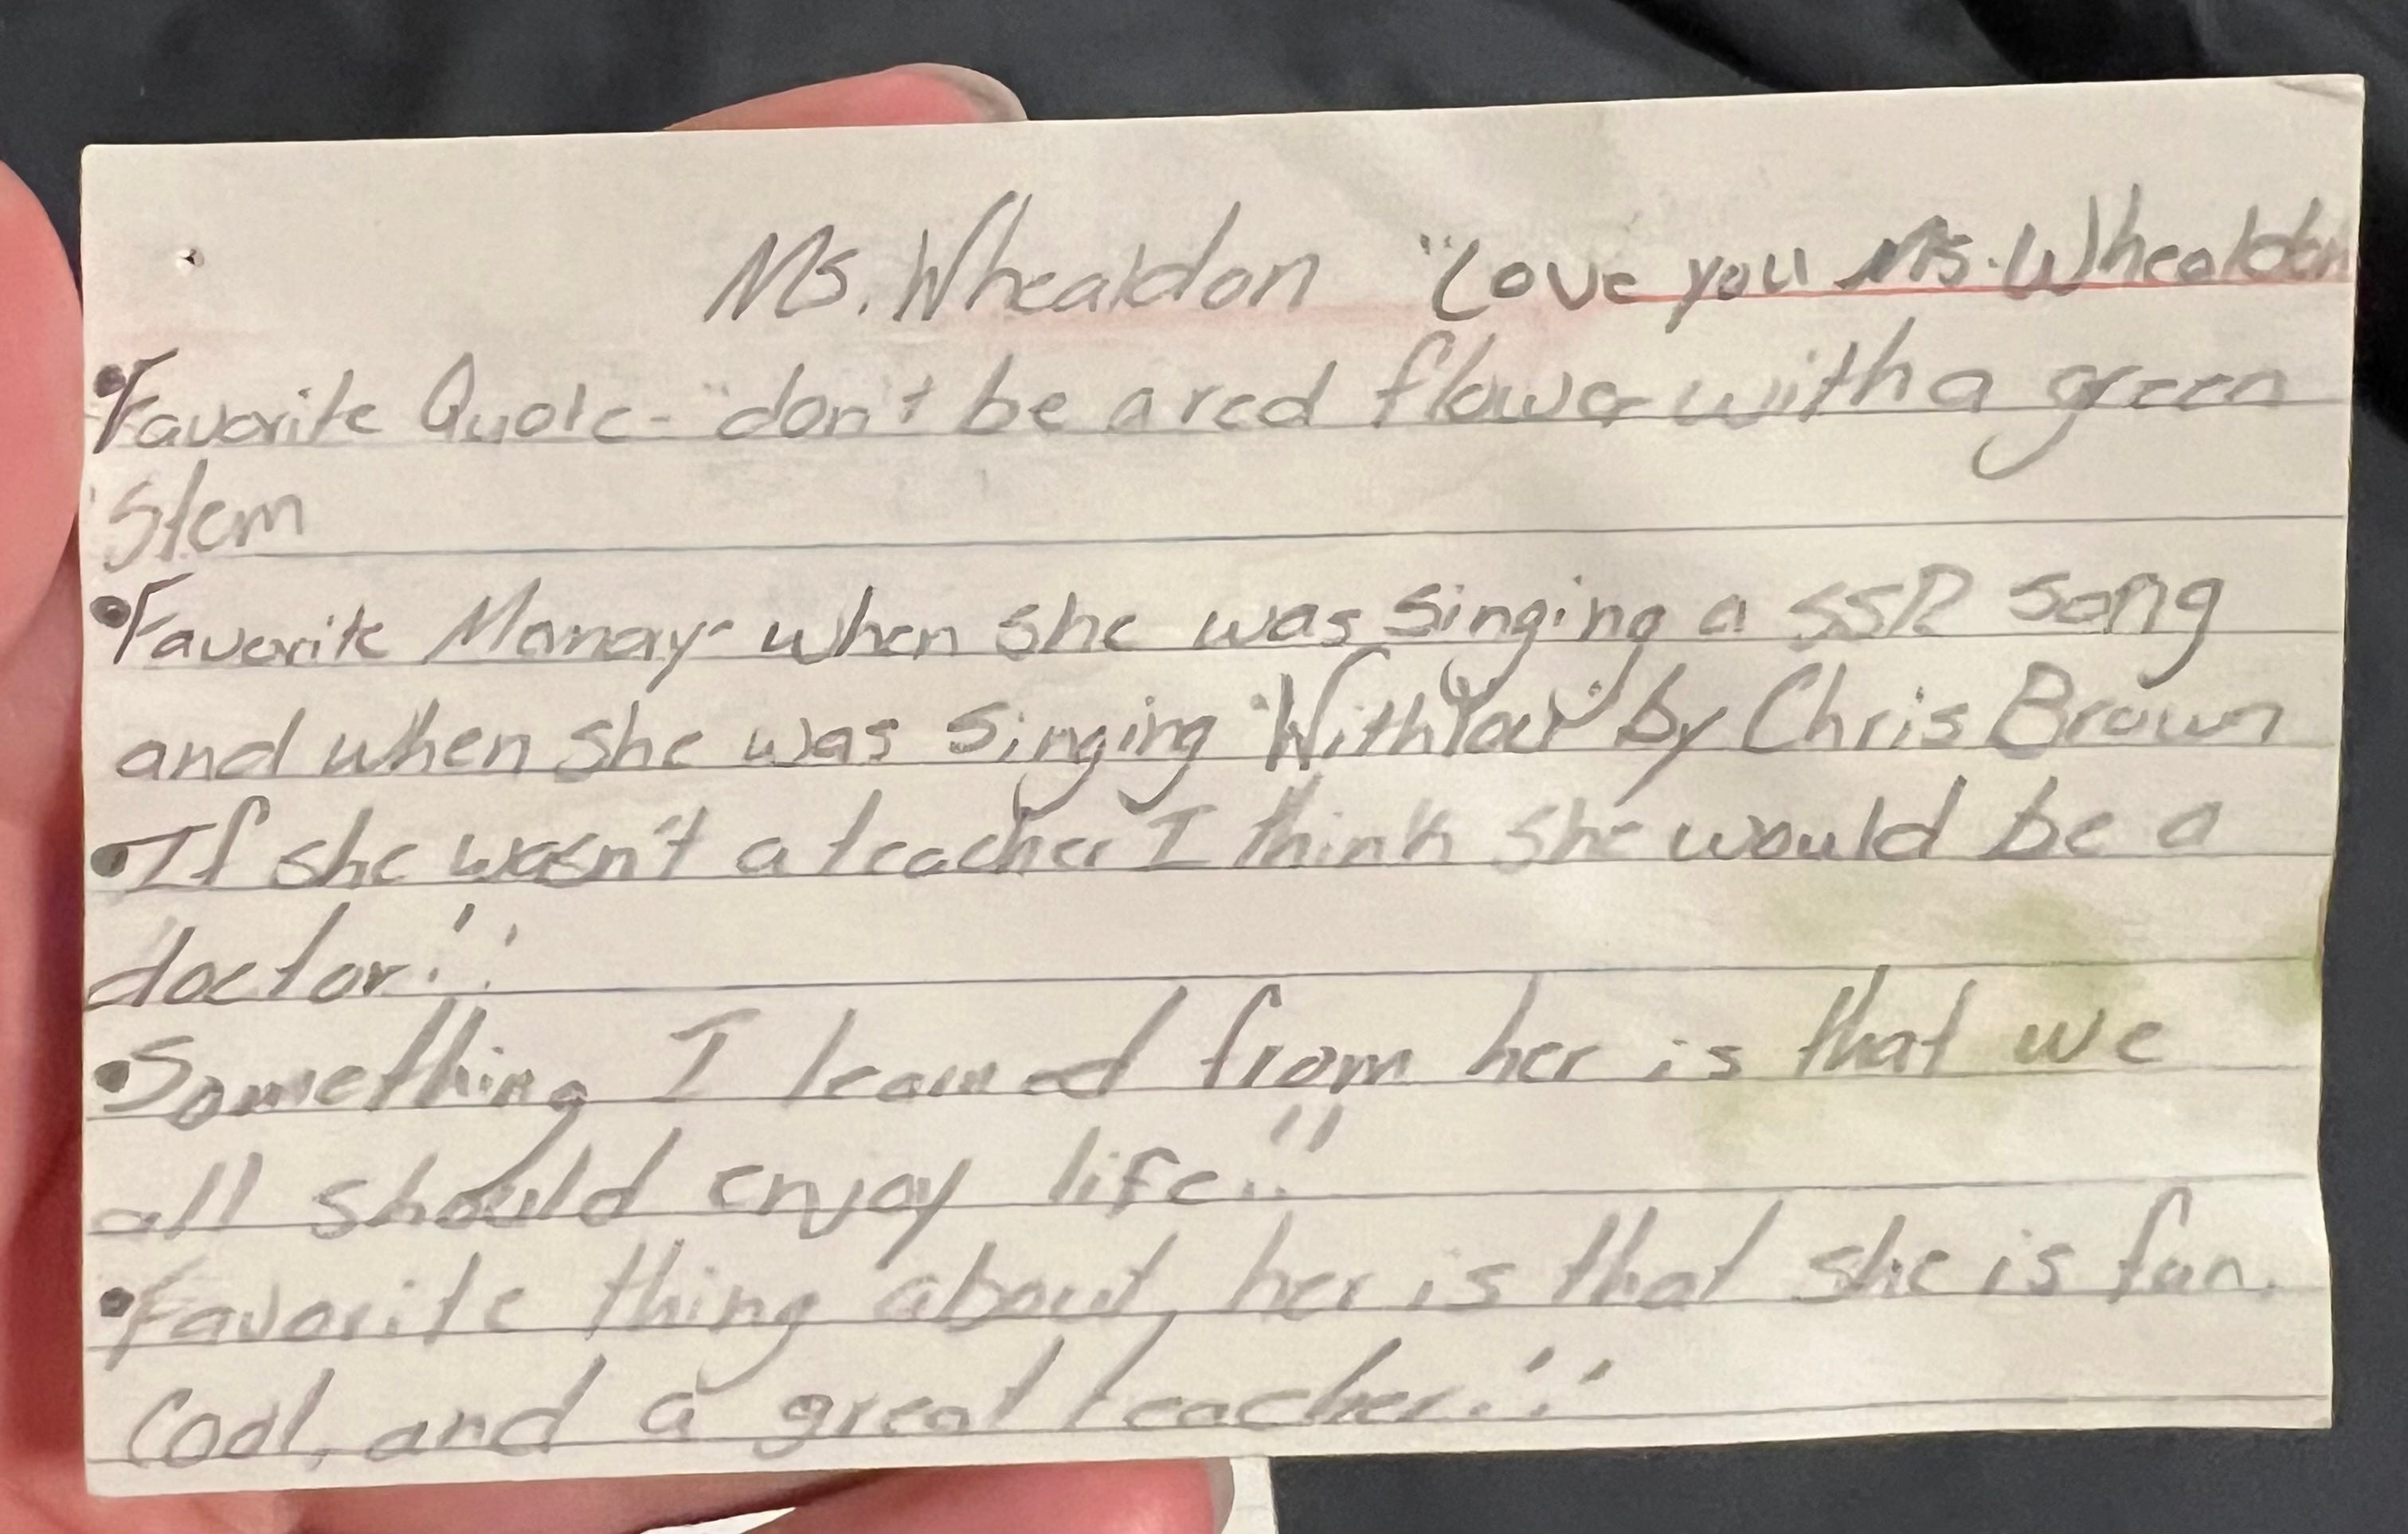 Ms. Whealdon "Love you Ms. Whealdon
• Favorite Quote - "don't be a red flower with a green
stem
• Favorite Momory - when she was singing a SSR song
and when she was singing "With You" by Chris Brown
• If she wasn't a teacher I think she would be a
doctor!!
• Something I learned from her is that we
all should enjoy life!!
• Favorite thing about her is that she is fun,
cool, and a great teacher!!